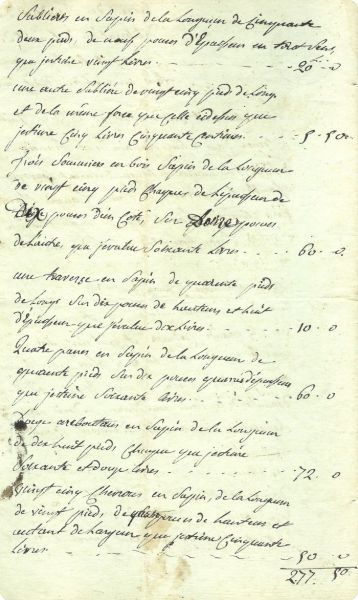 Sublieres en Sapin de la Longueur de Cinquante
deux pieds, de neuf pouces d'Epaisseur en tout Sens,
que j'estime vingt Livres. - - - - - - 20 " 0
une autre Subliere de vingt cinq pied de Long
et de la même force que celle cidessus que
jestime Cinq Livres Cinquante Centimes. - - - 5 . 50
trois Sommiers en bois Sapin de la Longueur
de vingt cinq pieds Chaques de Lépaisseur de
Dix pouces d'un Coté, Sur Douze pouces
de Lautre, que jévalue Soixante Livres. - - - 60 . 0
une traverse en Sapin de quarante pieds
de Longs Sur dix pouces de hauteur et huit
d'épaisseur que jévalue dix Livres. - - - - 10 . 0
Quatre panes en Sapin de la Longueur de
quarante pieds Sur dix pouces quarré dépaisseur
que jestime Soixante Livres. - - - - - 60 . 0
Douze arcboutans en Sapin de la Longueur
de dix huit pieds Chaque que jestime
Soixante et douze livres. - - - - - - 72 . 0
vingt cinq Chevrons en Sapin, de la Longueur
de vingt pieds, de pouces de hauteur et
autant de Largeur que jestime Cinquante
Livres - - - - - - - - - - - - 50 . 0
277 . 50